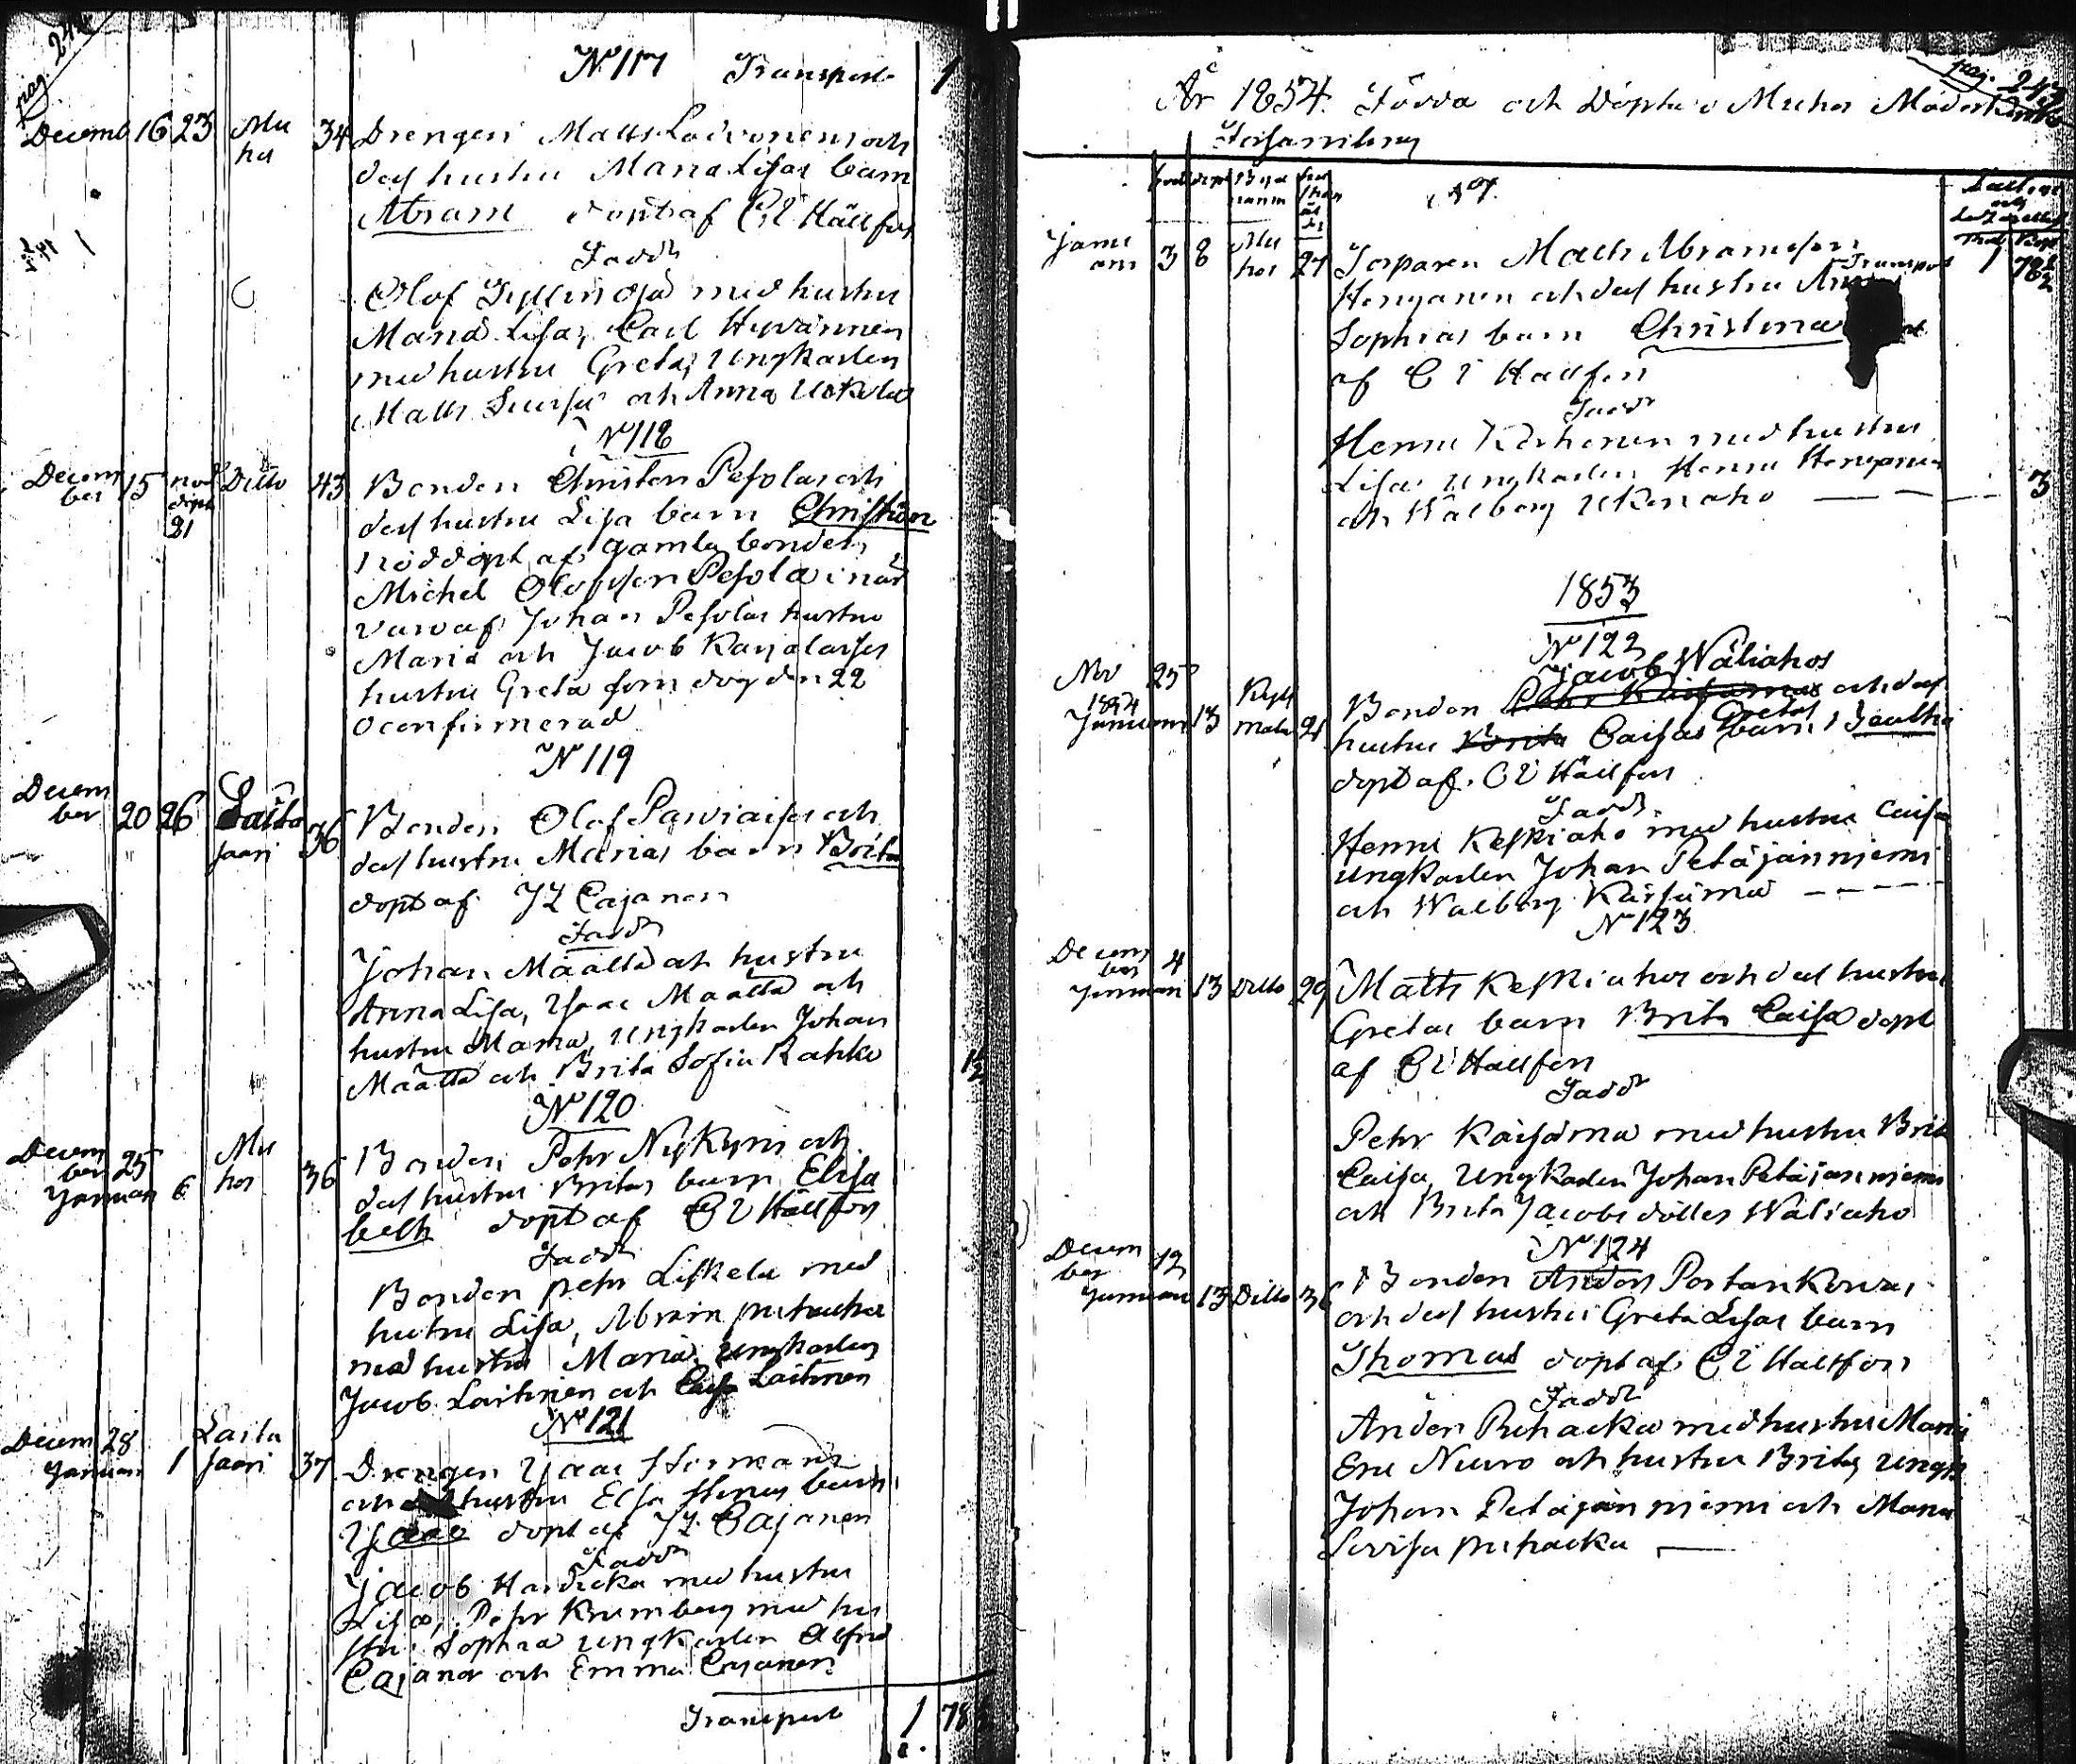 pag. 242
N° 117 Transport 1
Decemb 16 23 Mu 34 Drengen Matts Lodvonens och
hos dess hustru Maria Lisas barn
Abram döpt af C E Hällfors
Fadd
Olof Tyllinoja med hustru
Maria Lisa, Carl Hyvärinen
med hustru Greta, Ungkarlen
Matts Suorsa och Anna Uokila
N° 118
Decem 15 nöd Ditto 43 Bonden Christer Pesolas och
ber döpt dess hustru Lisa barn Christian
21 nöddöpt af gamla bonden
Michel Olofsson Pesola i när
varo af Johan Pesolas hustru
Maria och Jacob Karjalas
hustru Greta som dog den 22
oconfirmerad
N° 119
Decem 20 26 Laita 36 Bonden Olof Parviaises och
ber saari dess hustru Marias barn Brita
döpt af J Z Cajanen
Fadd
Johan Määttä och hustru
Anna Lisa, Isaac Määttä och
hustru Maria, Ungkarlen Johan
Määttä och Brita Sofia Rahko 1½
N° 120
Decem 25 Mu 36 Bonden Pehr Nykyri och
ber
Januari 6 hos dess hustru Britas barn Elisa
beth döpt af C E Hällfors
Fadd
Bonden Pehr Liskela med
hustru Lisa, Abram Puhacka
med hustru Maria, Ungkarlen
Jacob Laitinen och Caisa Laitinen
N° 121
Decem 28 Laita
Januari 1 saari 37 Drengen Isaac
och hustru Elsa barn
Isaac döpt af J Z Cajanen
Fadd
Jacob Hardicka med hustru
Lisa, Pehr Krumberg med hu
stru Sophia ungkarlen Alfred
Cajanor och Emma Cajanen
Transport 1 78½
pag. 243
År 1854. Födda och Döpta i Muhos Moderkyrko
Församling
född döpt Byns
namn N° 1.
Janu 3 8 Mu 27 Torparen Matts Abramsson Transport 1 78½
ari hos Honganen och dess hustru Anna
Sophias barn Christina
af C E Hällfors
Fadd
Henric Korhonen med hustru
Lisa, ungkarlen Henric Honganen
och Walborg Ukonaho 3
1853
N° 122
Nov 25 Jacob Wäliahos
1854 Kylä Bonden Pehr Käisämäs och dess
Januari 13 maba 21 hustru Brita Caisas Gretas barn
döpt af C E Hällfors
Fadd
Henric Keskiaho med hustru Caisa
ungkarlen Johan Petäjäniemi
och Walborg Kärsämä
N° 123
Decem 4
ber
Januari 13 Ditto 29 Matts Keskiahos och dess hustru
Gretas barn Brita Caisa döpt
af C E Hällfors
Fadd
Pehr Kaisämä med hustru Brita
Caisa, Ungkarlen Johan Petäjäniemi
och Brita Jacobs dotter Wäliaho
N° 124
Decem 12
ber
Januari 13 Ditto 36 Bonden Anders Portankorvas
och dess hustru Greta Lisas barn
Thomas döpt af C E Hällfors
Fadd
Anders Puhacka med hustru Maria
Eric Nuoro och hustru Brita, ungk
Johan Petäjäniemi och Maria
Lovisa Puhacka